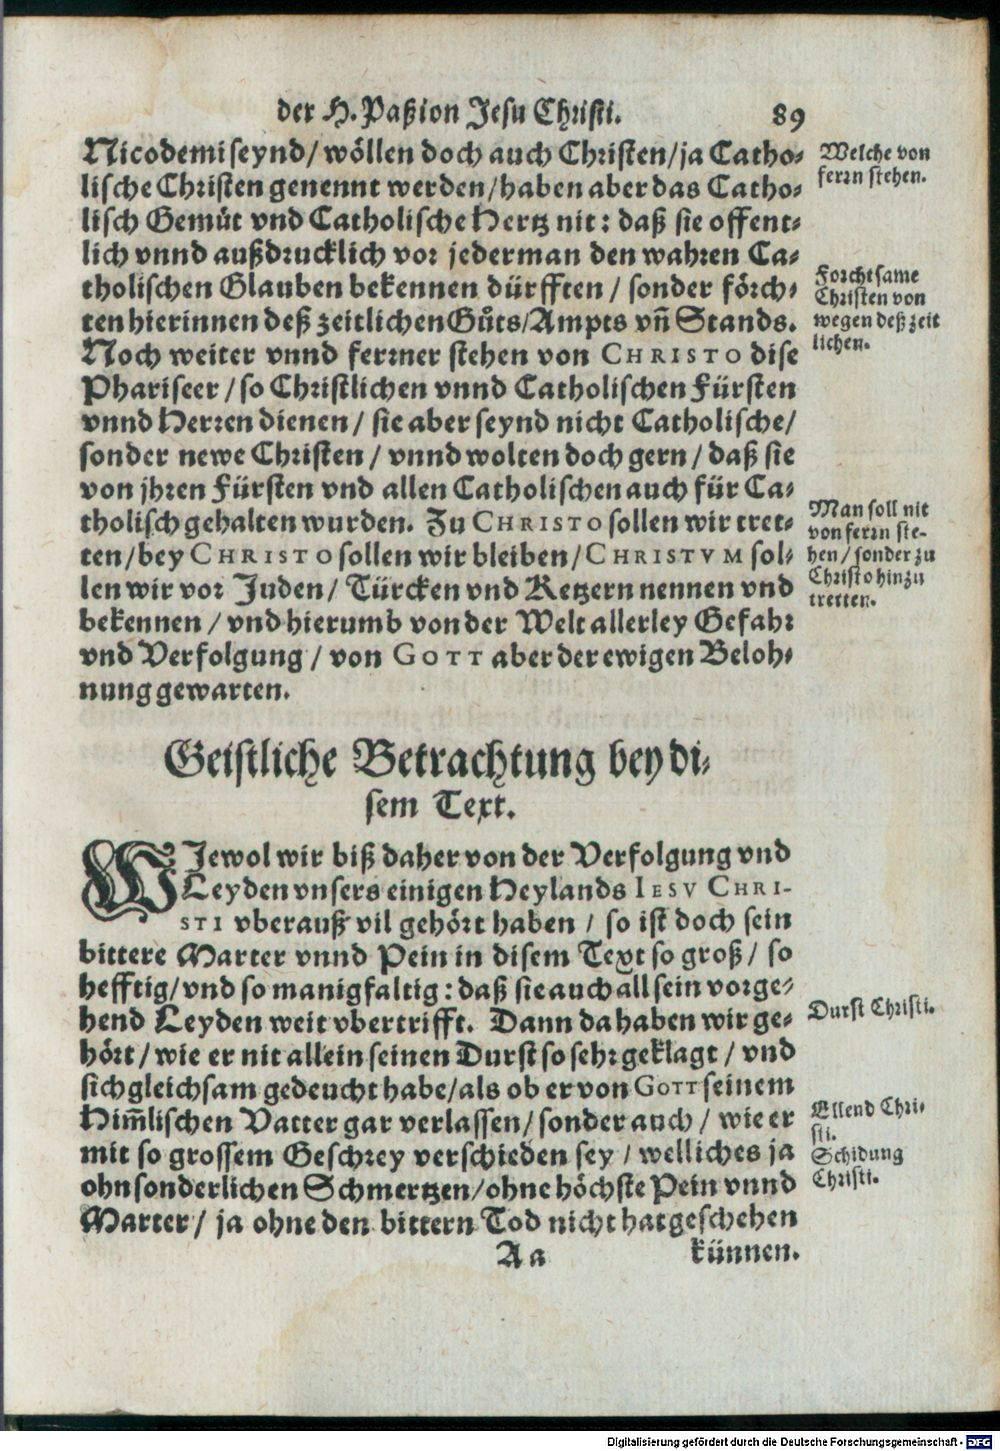 der H. Paßion Jesu Christi. 89
Nicodemi seynd/ wöllen doch auch Christen/ ja Catho-
lische Christen genennt werden/ haben aber das Catho-
lisch Gemüt vnd Catholische Hertz nit: daß sie offent-
lich vnnd außdrucklich vor jederman den wahren Ca-
tholischen Glauben bekennen dürfften / sonder förch-
ten hierinnen deß zeitlichen Gůts/ Ampts vn̄ Stands.
Noch weiter vnnd ferrner stehen von CHRISTO dise
Phariseer / so Christlichen vnnd Catholischen Fürsten
vnnd Herren dienen / sie aber seynd nicht Catholische/
sonder newe Christen / vnnd wolten doch gern / daß sie
von jhren Fürsten vnd allen Catholischen auch für Ca-
tholisch gehalten wurden. Zu CHRISTO sollen wir tret-
ten/ bey CHRISTO sollen wir bleiben/ CHRISTVM sol-
len wir vor Juden/ Türcken vnd Ketzern nennen vnd
bekennen / vnd hierumb von der Welt allerley Gefahr
vnd Verfolgung / von GOTT aber der ewigen Beloh-
nung gewarten.
Welche von
ferrn stehen.
Forchtsame
Christen von
wegen deß zeit
lichen.
Man soll nit
von ferrn ste-
hen / sonder zu
Christo hinzu
tretten.
Geistliche Betrachtung bey di-
sem Text.
WJewol wir biß daher von der Verfolgung vnd
Leyden vnsers einigen Heylands IESV CHRI-
STI vberauß vil gehört haben / so ist doch sein
bittere Marter vnnd Pein in disem Text so groß/ so
hefftig/ vnd so manigfaltig: daß sie auch all sein vorge-
hend Leyden weit vbertrifft. Dann da haben wir ge-
hört / wie er nit allein seinen Durst so sehr geklagt / vnd
sich gleichsam gedeucht habe/ als ob er von GOTT seinem
Him̄lischen Vatter gar verlassen/ sonder auch / wie er
mit so grossem Geschrey verschieden sey / welliches ja
ohn sonderlichen Schmertzen/ ohne höchste Pein vnnd
Marter/ ja ohne den bittern Tod nicht hat geschehen
Durst Christi.
Ellend Chri-
sti.
Schidung
Christi.
Aa künnen.
Digitalisierung gefördert durch die Deutsche Forschungsgemeinschaft - DFG